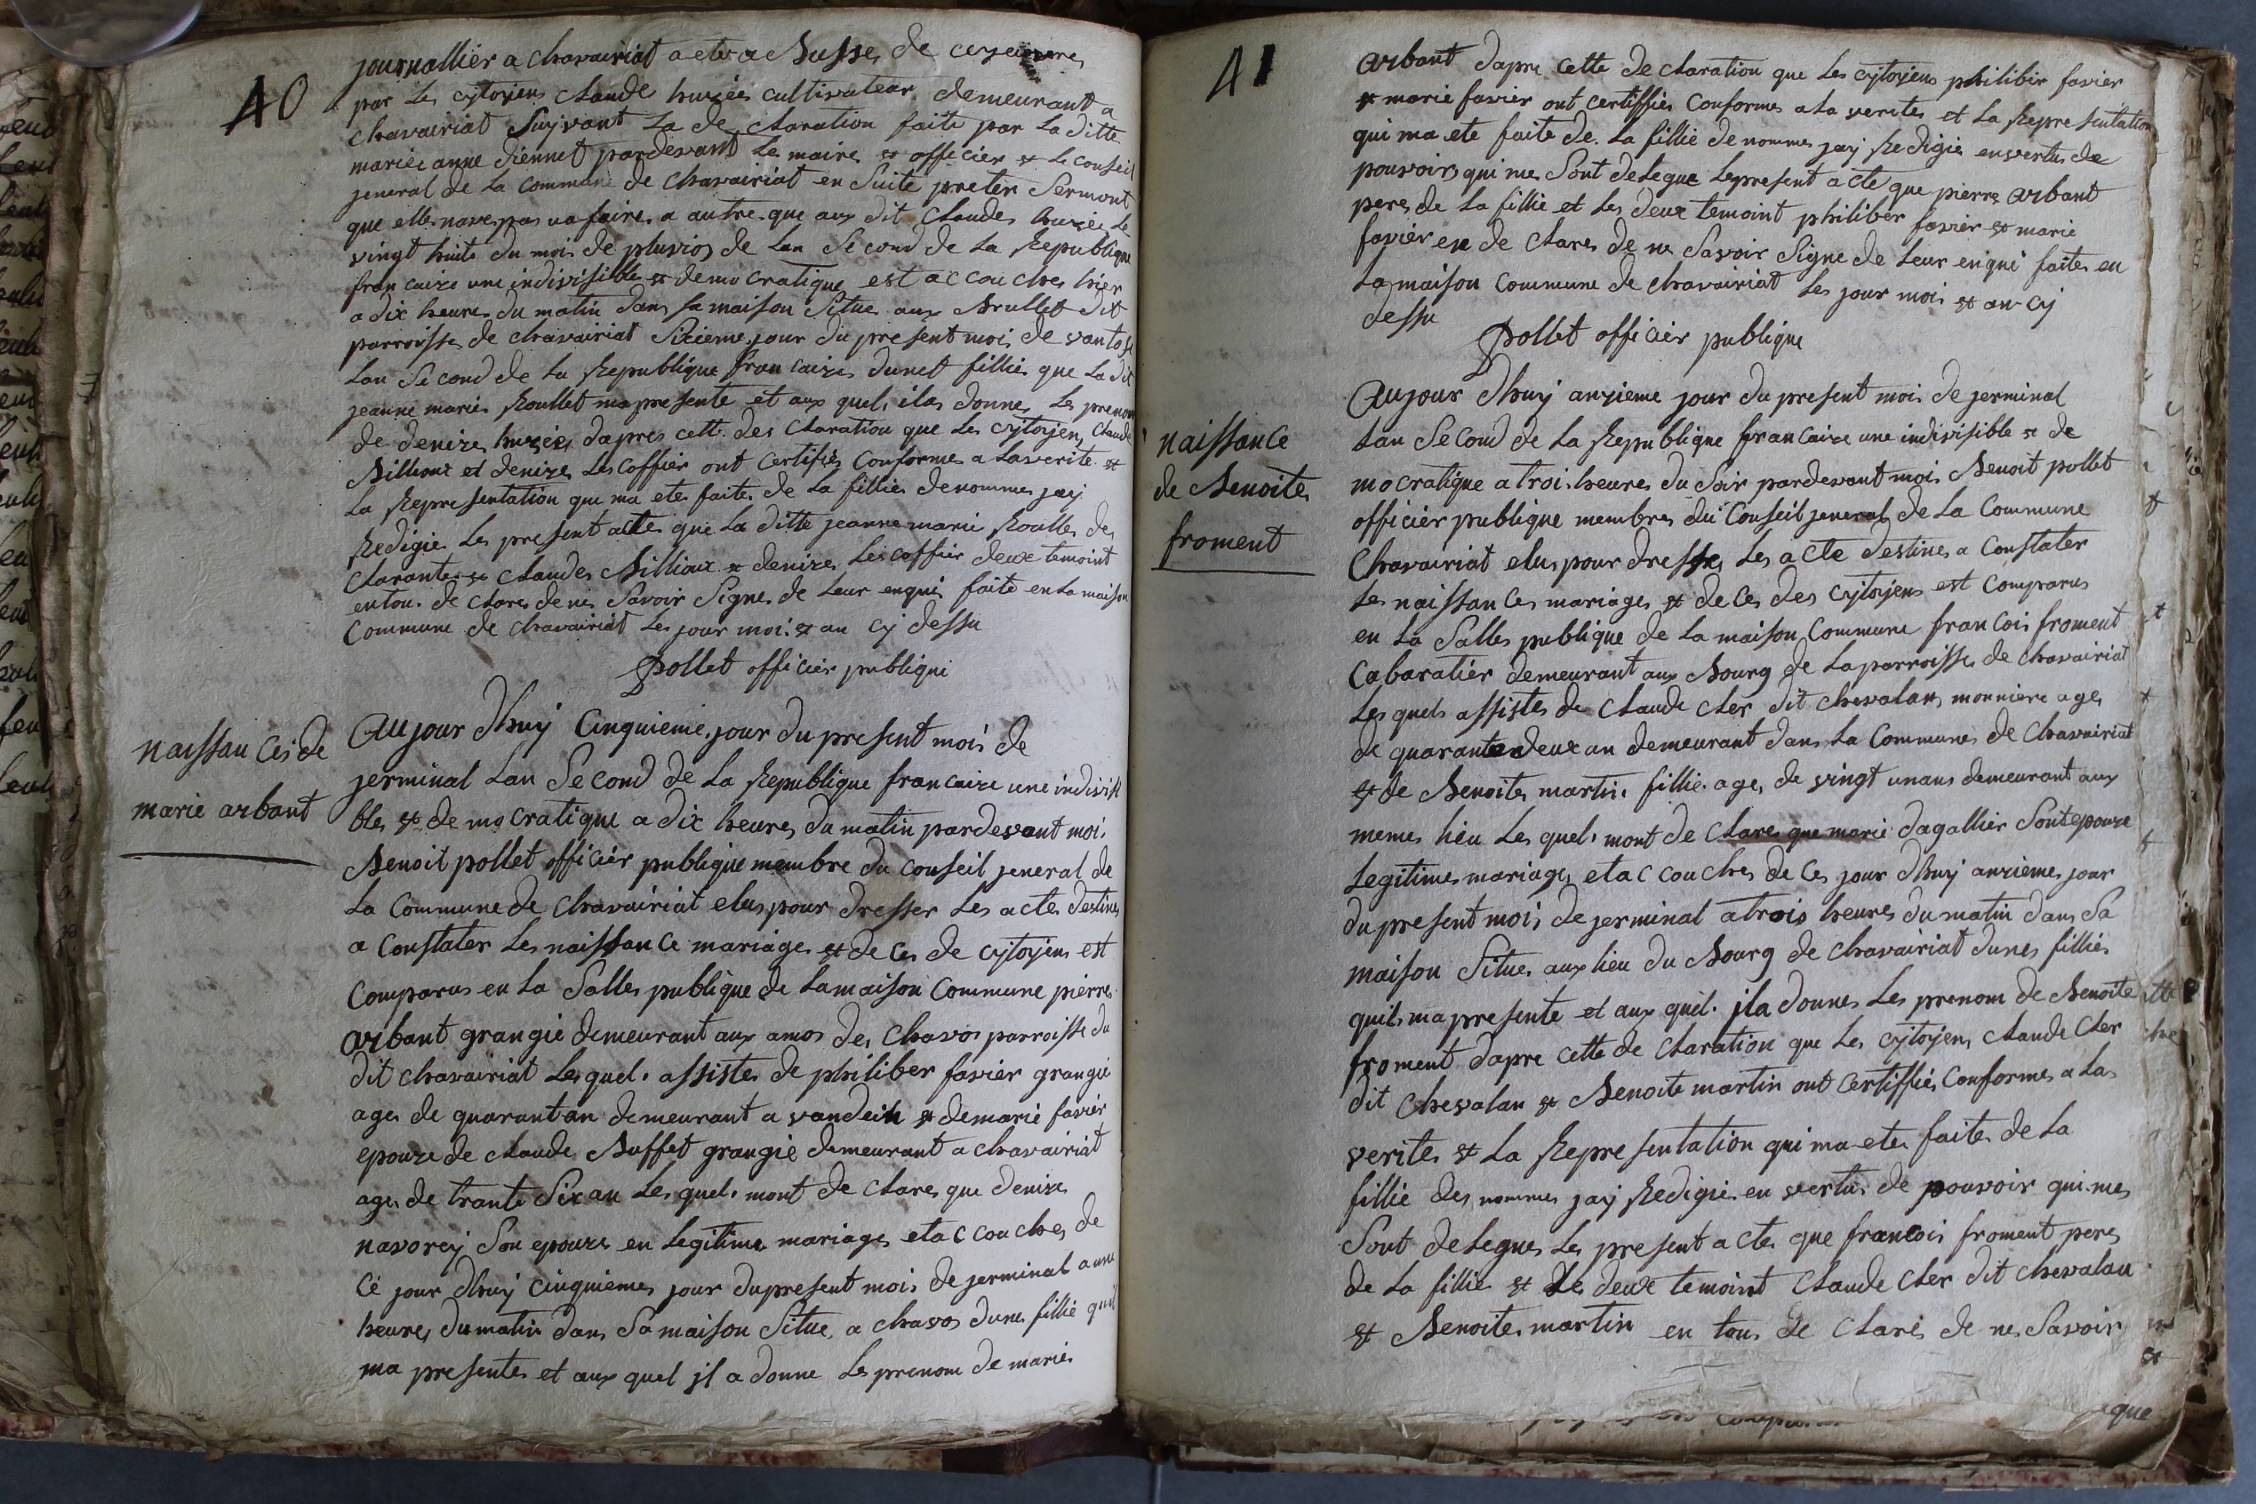 40
journallier a chavairiat
par Les cytoyens claude huzées cultivateur demeurant a
chavairiat Suyvant La de claration faite par La ditte
mariée anne diennet pardevant Le maire et officier et Le conseil
jeneral de La commune de chavairiat en Suite preter Serment
que elle navepas ua faire a autre que aux dit claudes huzées Le
vingt huite du moi de pluvios de Lan Second de La Republique
francaize une indivisibles et democratique est accouches hier
a dix heures du matin dans sa maison Situe aux Brullet dit
parroisse de chavairiat Sixieme jour du present moi de vantose
Lan Second de La Republique francaizes dunet fillies que La dit
jeanne maries Roullet ma presente et aux quel, ilas donnes Les prenom
de denizes huzées dapres cett. des claration que Les cytoyens claude
Billioux et denizes Lescoffier ont certifies conformes a Laverite et
La Representation qui ma etes faites de La fillies denommes jaij
Redigies Les present acte que La ditte jeanne marie Roulles de
clarantes et claudes Billioux et denizes Lescoffier deux temoint
entou. de clares de ne Savoir Signes de Leur enquis faite en La maison
commune de chavairiat Les jour moi et an cy dessu
pollet officier publique
naissances de
marie arbant
Aujour dhuy cinquiemes jour du present moi de
jerminal Lan Second de La Republique francaize une indivisi
bles et democratique a dix heures du matin pardevant moi.
Benoit pollet officier publique membre du conseil jeneral de
La commune de chavairiat elus pour dresser Les actes destines
a constater Les naissance mariages et de ces de cytoyens est
comparus en La Salles publique de La maison commune pierres
arbant grangie demeurant aux amos des chavos parroisse du
dit chavairiat Les quel. assistes de philiber favier grangie
ages de quarantan demeurant a vandein et de marie favier
epouze de claude Buffet grangie demeurant a chavairiat
ages de trante Six an Les quel. mont de clares que denizes
navorey Son epouze en Legitime mariages etaccouches de
ce jour dhuy cinquiemes jour dupresent moi de jerminal a une
heures du matin dans Sa maison Situe a chavos dunes fillie quil
ma presentes et aux quel il a donne Le prenom de maries
41
arbant dapre cette de claration que Les cytoyens philiber favier
et marie favier ont certiffies conformes a La verites et La Representation
qui ma ete faite de La fillie denommes jay Redigie envertus de
pouvoirs qui mes Sont deLegue Lepresent acte que pierres arbant
peres de La fillie et Les deux temoint philiber favier et marie
favier en de clares de ne Savoir Signe de Leur enqui faites en
La maison commune de chavairiat Les jour moi et an cy
dessu
pollet officier publique
naissance
de Benoites
froment
Aujour dhuy anzieme jour du present moi de jerminal
Lan Second de La Republique francaize une indivisible et de
mocratique a troi. heures du Soir pardevant moi Benoit pollet
officier publique membres du Conseil jeneral de La commune
Chavairiat elus pour dresser Les acte destines a constater
Les naissances mariages et de ces des cytoyens est comparus
en La Salles publique de La maison commune francois froment
cabaratier demeurant aux Bourg de La parroisses de chavairiat
Les quels assistes de claude cler dit chevalan monniere ages
de quarantedeux an demeurant dans La communes de chavairiat
et de Benoites martin fillie. ages de vingt unans demeurant aux
memes lieu Les quel. mont de clares que marie dagallier Sont epouze
Legitimes mariages etaccouches de ces jour dhuy anziemes jour
du present moi de jerminal a trois heures du matin dans Sa
maison Situe aux lieu du Bourg de chavairiat dunes fillies
quils ma presente et aux quel. ila donnes Les prenom de Benoite
froment dapre cette de claration que Les cytoyens claude cler
dit chevalan et Benoite martin ont certiffies conformes a La
verites et La Representation qui ma etes faites de La
fillie des nommes jay Redigie en vertus de pouvoir qui mes
Sont deLegues Les present actes que francois froment peres
de La fillie et Les deux temoint claude cler dit chevalan
et Benoites martin en tous de clares de ne Savoir
que